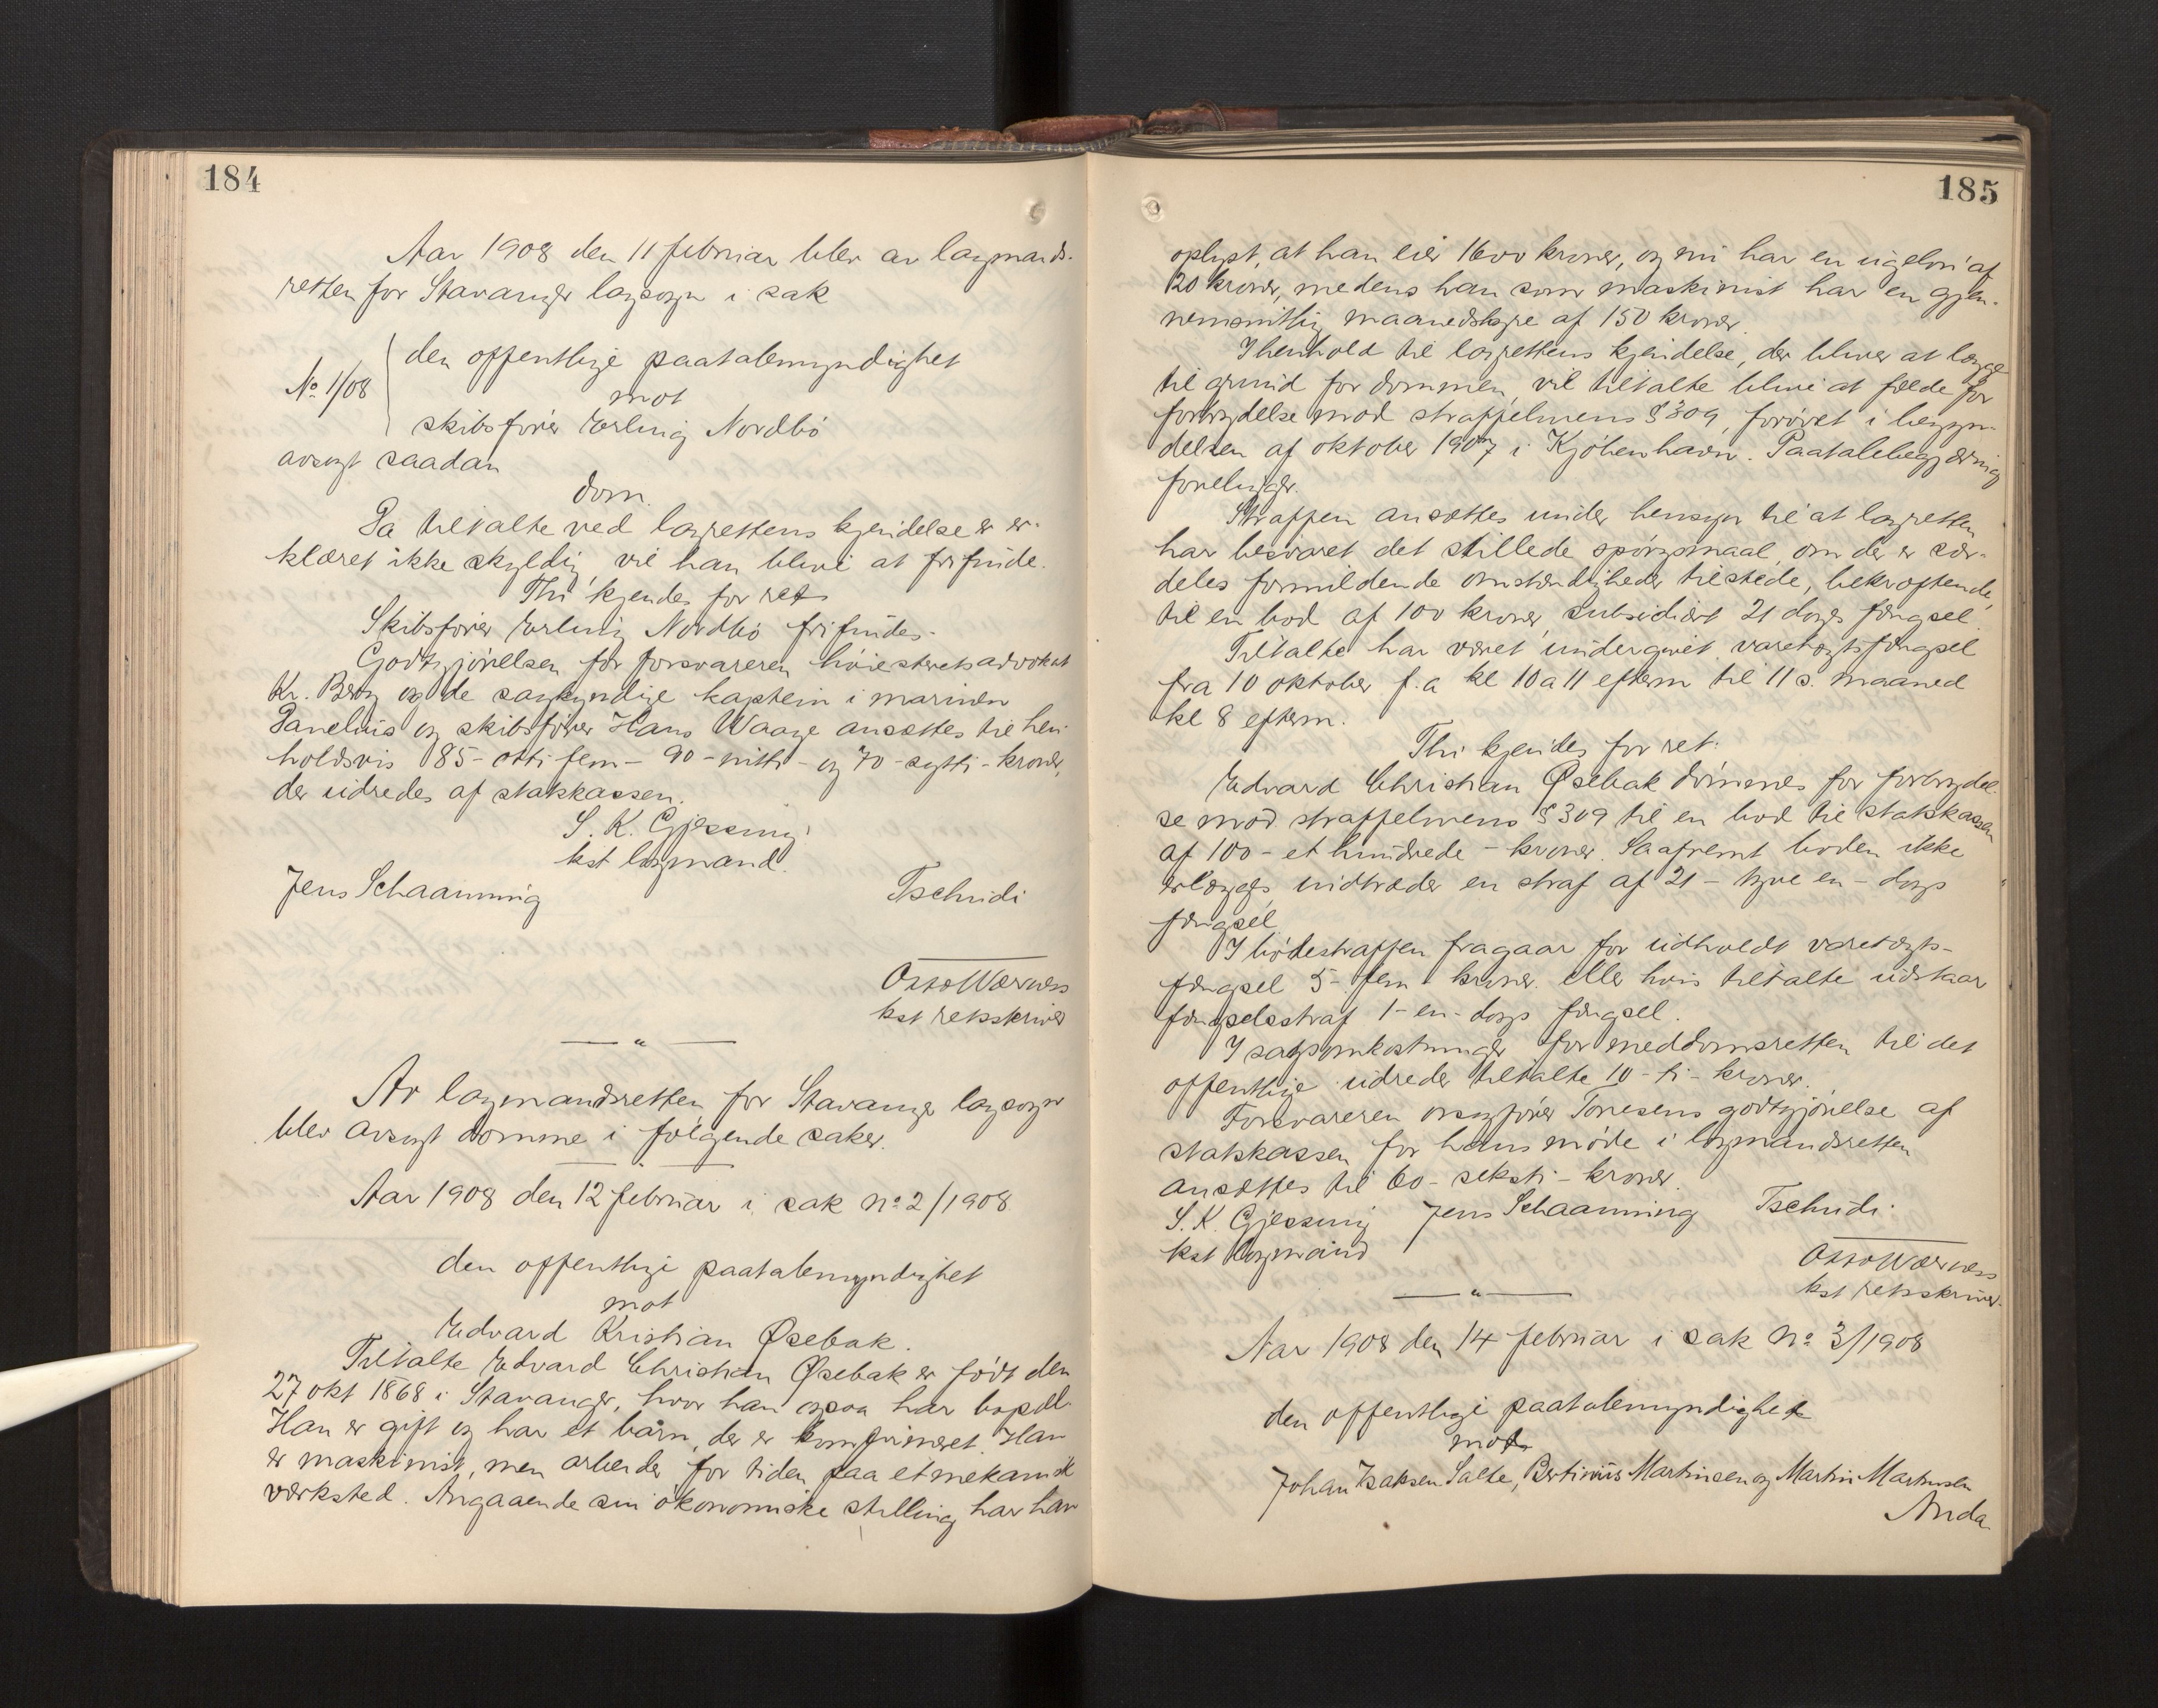 184
Aar 1908 den 11 februar blev av lagmands-
retten for Stavanger lagsogn i sak
den offentlige paatalemyndighet
No 1/08
mot
skibsfører Erling Nordbö
avsagt saadan
dom.
Da tiltalte ved lagrettens kjendelse er er-
klæret ikke skyldig, vil han blive at frifinde.
Thi kjendes for ret
Skibsfører Erling Nordbö frifindes.
Godtgjörelsen for forsvareren höiesteretsadvokat
Kr. Berg og de sagkyndige kaptein i marinen
Danelius og skibsfører Hans Waage ansættes til hen-
holdsvis 85 - otti fem - 90 - nitti - og 70 - sytti - kroner,
der udredes af statskassen.
S. K. Gjessing
kst lagmand.
Jens Schaanning Tschudi
Otto Værnes
kst retsskriver
— " —
Av lagmandsretten for Stavanger lagsogn
blev avsagt domme i følgende saker.
Aar 1908 den 12 februar i sak No 2/1908.
den offentlige paatalemyndighet
mot
Edvard Kristian Øsebak.
Tiltalte Edvard Christian Øsebak er født den
27 okt 1868 i Stavanger, hvor han ogsaa har bopæl.
Han er gift og har et barn, der er konfirmeret. Han
er maskinist, men arbeider for tiden paa et mekanisk
værksted. Angaaende sin økonomiske stilling har han
185
oplyst, at han eier 1600 kroner, og nu har en ugelön af
20 kroner, medens han som maskinist har en gjen-
nemsnitlig maanedshyre af 150 kroner.
I henhold til lagrettens kjendelse, der bliver at lægge
til grund for dommen, vil tiltalte blive at fælde for
forbrydelse mod straffelovens § 309, forövet i begyn-
delsen af oktober 1907 i Kjöbenhavn. Paatalebegjæring
foreligger.
Straffen ansættes under hensyn til at lagretten
har besvaret det stillede spörgsmaal, om der er sær-
deles formildende omstændigheder tilstede, bekræftende,
til en bod af 100 kroner, subsidiært 21 dages fængsel.
Tiltalte har været undergivet varetægtsfængsel
fra 10 oktober f.a kl 10 a 11 efterm til 11 s. maaned
kl 8 efterm.
Thi kjendes for ret:
Edvard Christian Øsebak dömmes for forbrydel-
se mod straffelovens § 309 til en bod til statskassen
af 100 - et hundrede - kroner. Saafremt boden ikke
erlægges, indtræder en straf af 21 - tyve en - dags
fængsel.
I bödestraffen fragaar for udholdt varetægts-
fængsel 5 - fem - kroner eller hvis tiltalte udstaar
fængselsstraf 1 - en - dags fængsel.
I sagsomkostninger for meddomsretten til det
offentlige udreder tiltalte 10 - ti - kroner.
Forsvareren overretssagförer Torresens godtgjörelse af
statskassen for hans möde i lagmandsretten
ansættes til 60 - seksti - kroner.
S. K. Gjessing Jens Schaanning Tschudi.
kst lagmand
Otto Værnes
kst retsskriver.
— " —
Aar 1908 den 14 februar i sak No 3/1908
den offentlige paatalemyndighet
mot
Johan Isaksen Salte, Bertinius Martinsen og Martin Martinsen
Anda.